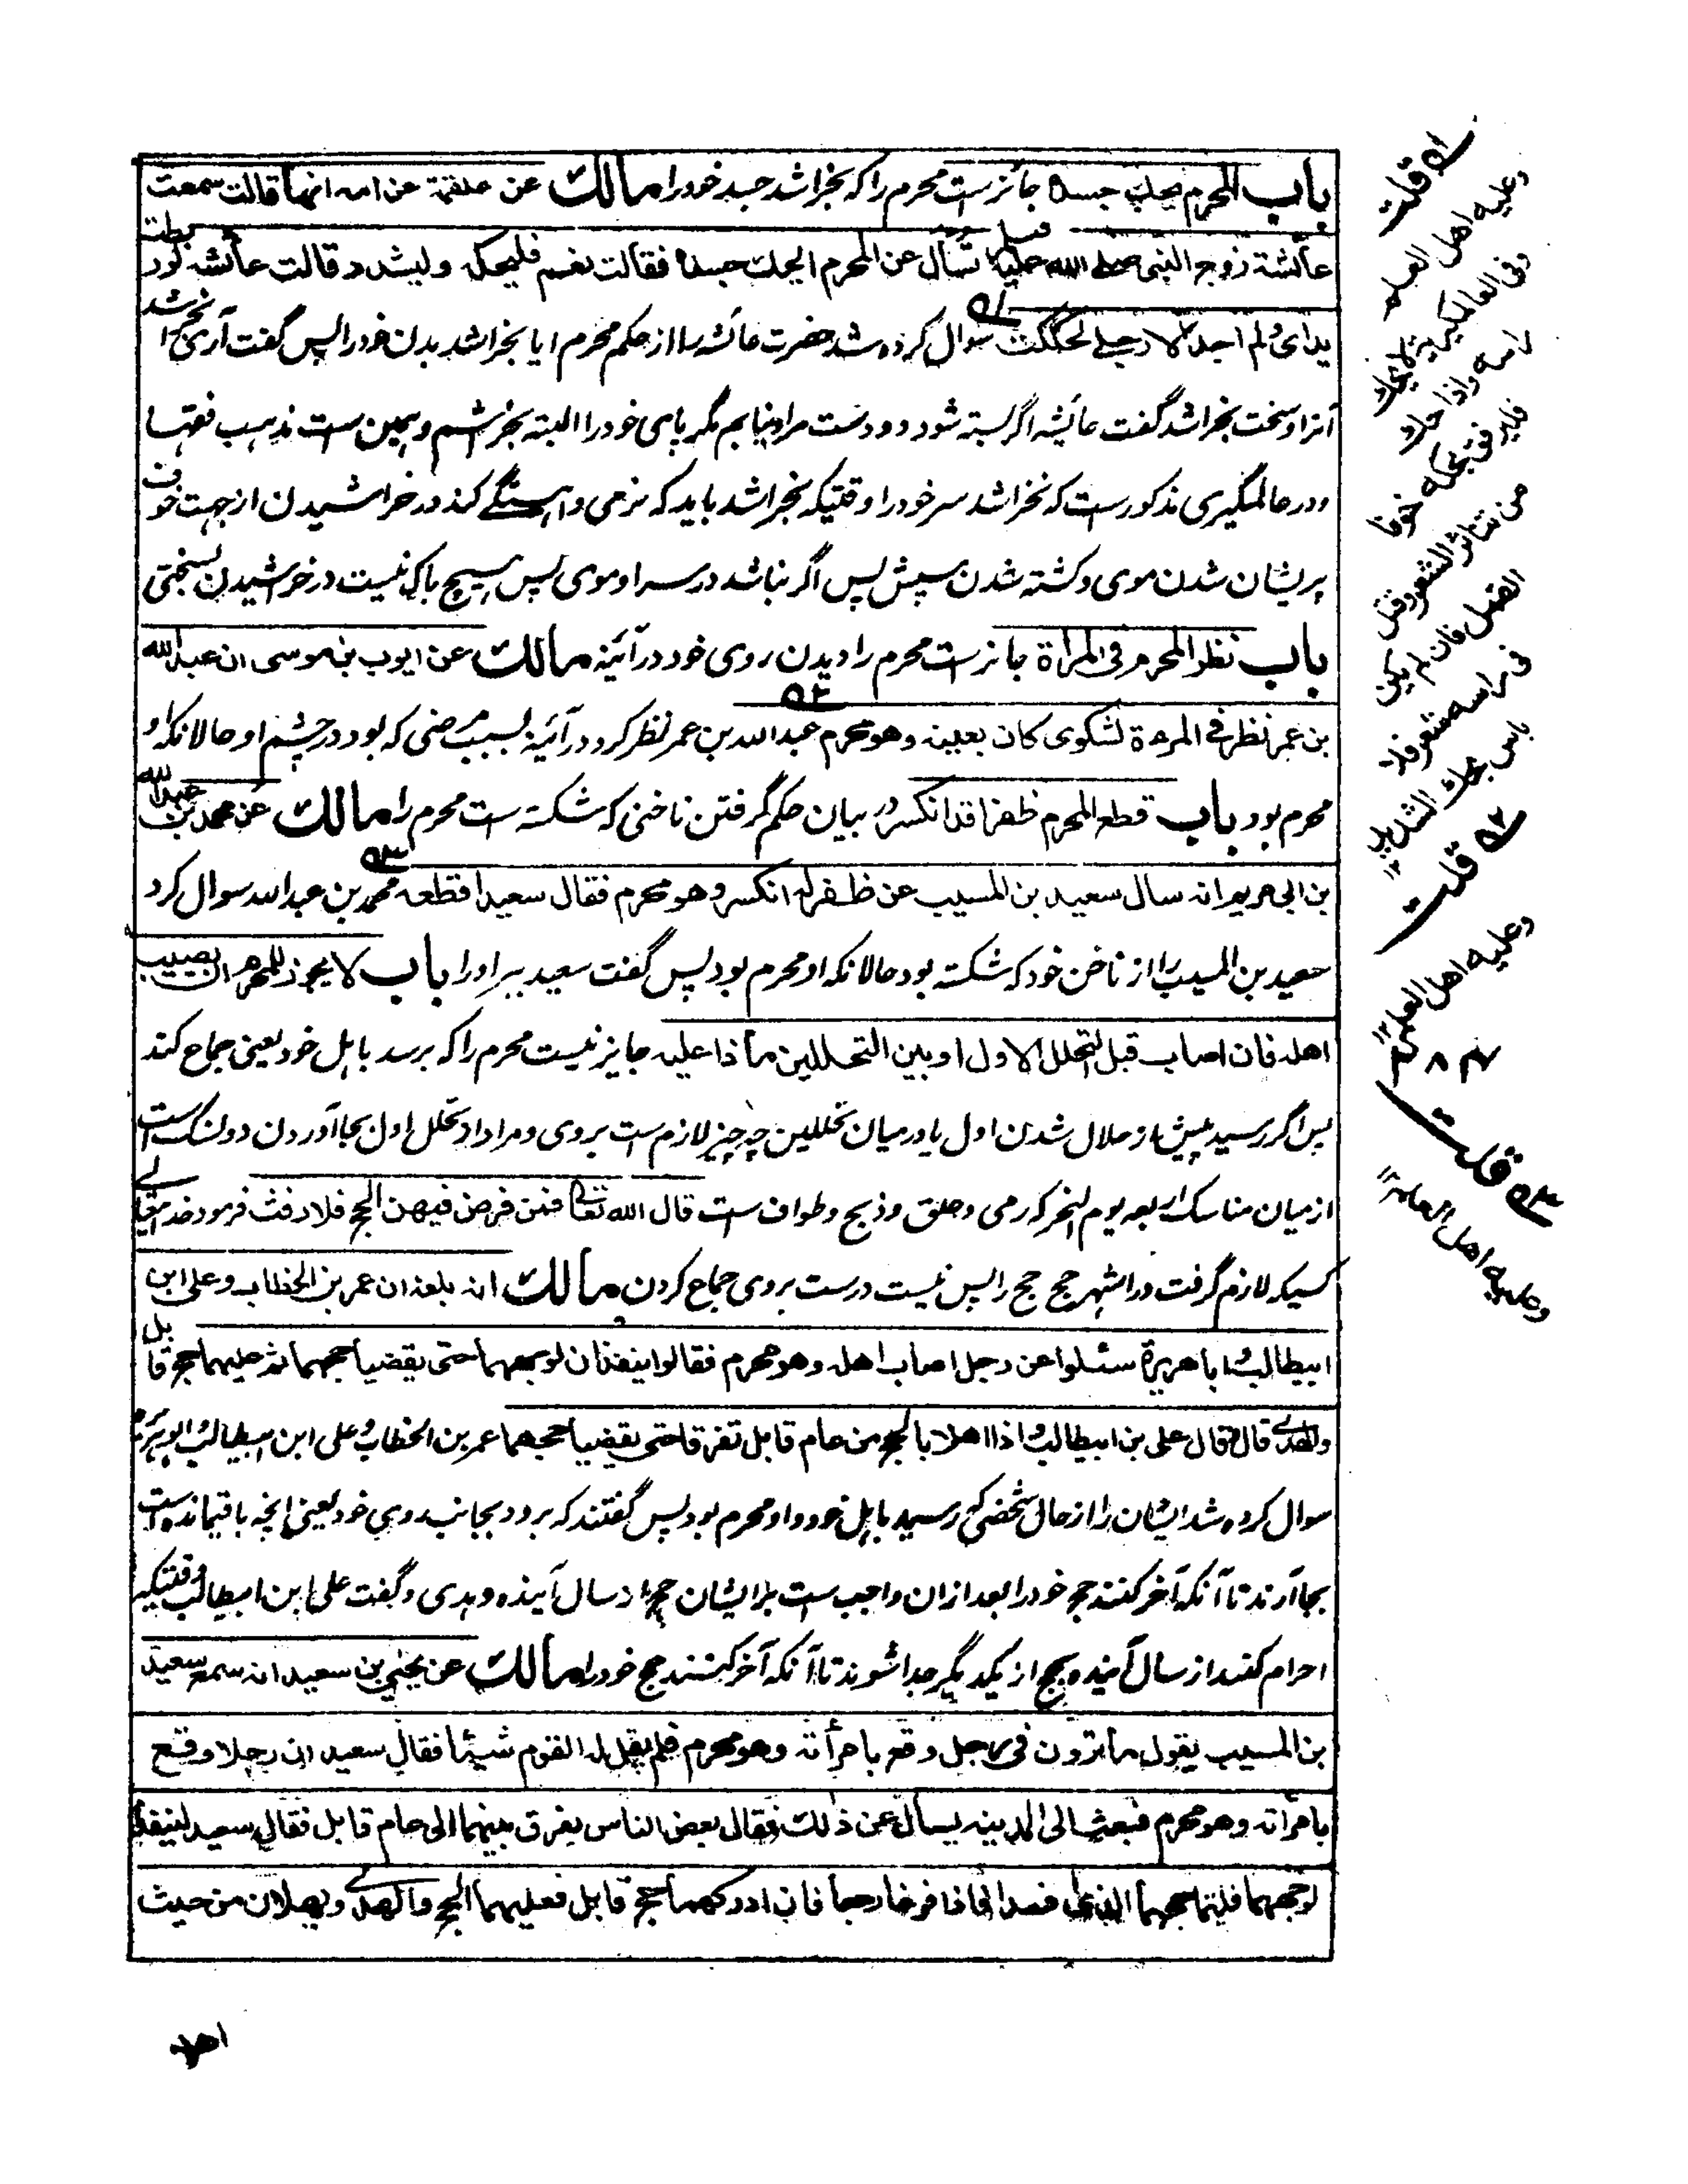 باب المحرم يحك جسده جائزست محرم را که بخراشد جسد خود را مالك عن علقمة عن امه انها قالت سمعت
عائشة زوج النبي صلى الله عليه وسلم تسأل عن المحرم ايحك جسده فقالت نعم فليحكه وليشدد قالت عائشه لو ربطت
يداى ولم اجد الا رجلي لحككت سوال کرده شد حضرت عائشه را از حکم محرم ایا بخراشد بدن خود را پس گفت آری بخراشد
آنرا و سخت بخراشد گفت عائشه اگر بسته شود دو دست مرا و نیابم مگر پای خود را البته بخراشم و همین ست مذهب فقها
و در عالمگیری مذکورست که نخراشد سر خود را و قتیکه بخراشد باید که نرمی و آهستگی کند در خراشیدن از جهت خوف
پریشان شدن موی و کشته شدن سپش پس اگر نباشد در سر او موی پس هیچ باکی نیست در خراشیدن بسختی
باب نظر المحرم فى المرأة جائزست محرم را دیدن روی خود در آئینه مالك عن ايوب بن موسى ان عبد الله
بن عمر نظر في المرءة لشكوى كان بعينه وهو محرم عبد الله بن عمر نظر کرد در آئینه بسبب مرضی که بود در چشم او حالانکه او
محرم بود باب قطع المحرم ظفرا قد انكسر در بیان حکم گرفتن ناخنی که شکسته ست محرم را مالك عن محمد بن عبد الله
بن ابى مريم انه سال سعيد بن المسيب عن ظفر له انكسر وهو محرم فقال سعيد اقطعه محمد بن عبد الله سوال کرد
سعید بن المسیب را از ناخن خود که شکسته بود حالانکه او محرم بود پس گفت سعید ببر او را باب لا يجوز للمحرم ان يصيب
اهله فان اصاب قبل التحلل الاول او بين التحللين ماذا عليه جایز نیست محرم را که برسد باهل خود یعنی جماع کند
پس اگر رسید پیش از حلال شدن اول یا در میان تحللین چه چیز لازم ست بروی و مراد از تحلل اول بجا آوردن دو نسک است
از میان مناسک اربعه یوم النحر که رمی و حلق و ذبح و طواف ست قال الله تعالى فمن فرض فيهن الحج فلا رفث فرمود خدایتعالی
کسیکه لازم گرفت در اشهر حج حج را پس نیست درست بروی جماع کردن مالك انه بلغه ان عمر بن الخطاب وعلى ابن
ابيطالب و ابا هريرة سئلوا عن رجل اصاب اهله وهو محرم فقالوا ينفذان لوجههما حتى يقضيا حجهما ثم عليهما حج قابل
والهدي قال وقال على بن ابيطالب و اذا اهلا بالحج من عام قابل تفرقا حتى يقضيا حجهما عمر بن الخطاب و علی ابن ابیطالب و ابو هریره
سوال کرده شد ایشان را از حال شخصی که رسید باهل خود و او محرم بود پس گفتند که برود بجانب روی خود یعنی انچه باقیمانده است
بجا آرند تا آنکه آخر کنند حج خود را بعد ازان واجب ست بر ایشان حج از سال آینده و هدی و گفت علی ابن ابیطالب وقتیکه
احرام کنند از سال آینده بحج از یکدیگر جدا شوند تا آنکه آخر کنند حج خود را مالك عن يحيى بن سعيد انه سمع سعيد
بن المسيب يقول ما ترون فى رجل وقع بامرأته وهو محرم فلم يقل له القوم شيئا فقال سعيد ان رجلا وقع
بامرأته وهو محرم فبعث الى المدينه يسأل عن ذلك فقال بعض الناس يفرق بينهما الى عام قابل فقال سعيد لينفذا
لوجههما فليتما حجهما الذى افسداه فاذا فرغا رجعا فان ادركهما حج قابل فعليهما الحج والهدي ويهلان من حيث
اهلا
۵۱ قلت
وعليه اهل العلم
وفى العالمگيرية لا يحك
راسه واذا حك
فليرفق بحكه خوفا
من تناثر الشعر وقتل
القمل فان لم يكن
فى راسه شعر فلا
باس بحك الشديد ۱۲
۵۲ قلت
وعليه اهل العلم ۱۲
۵۳ قلت
وعليه اهل العلم ۱۲